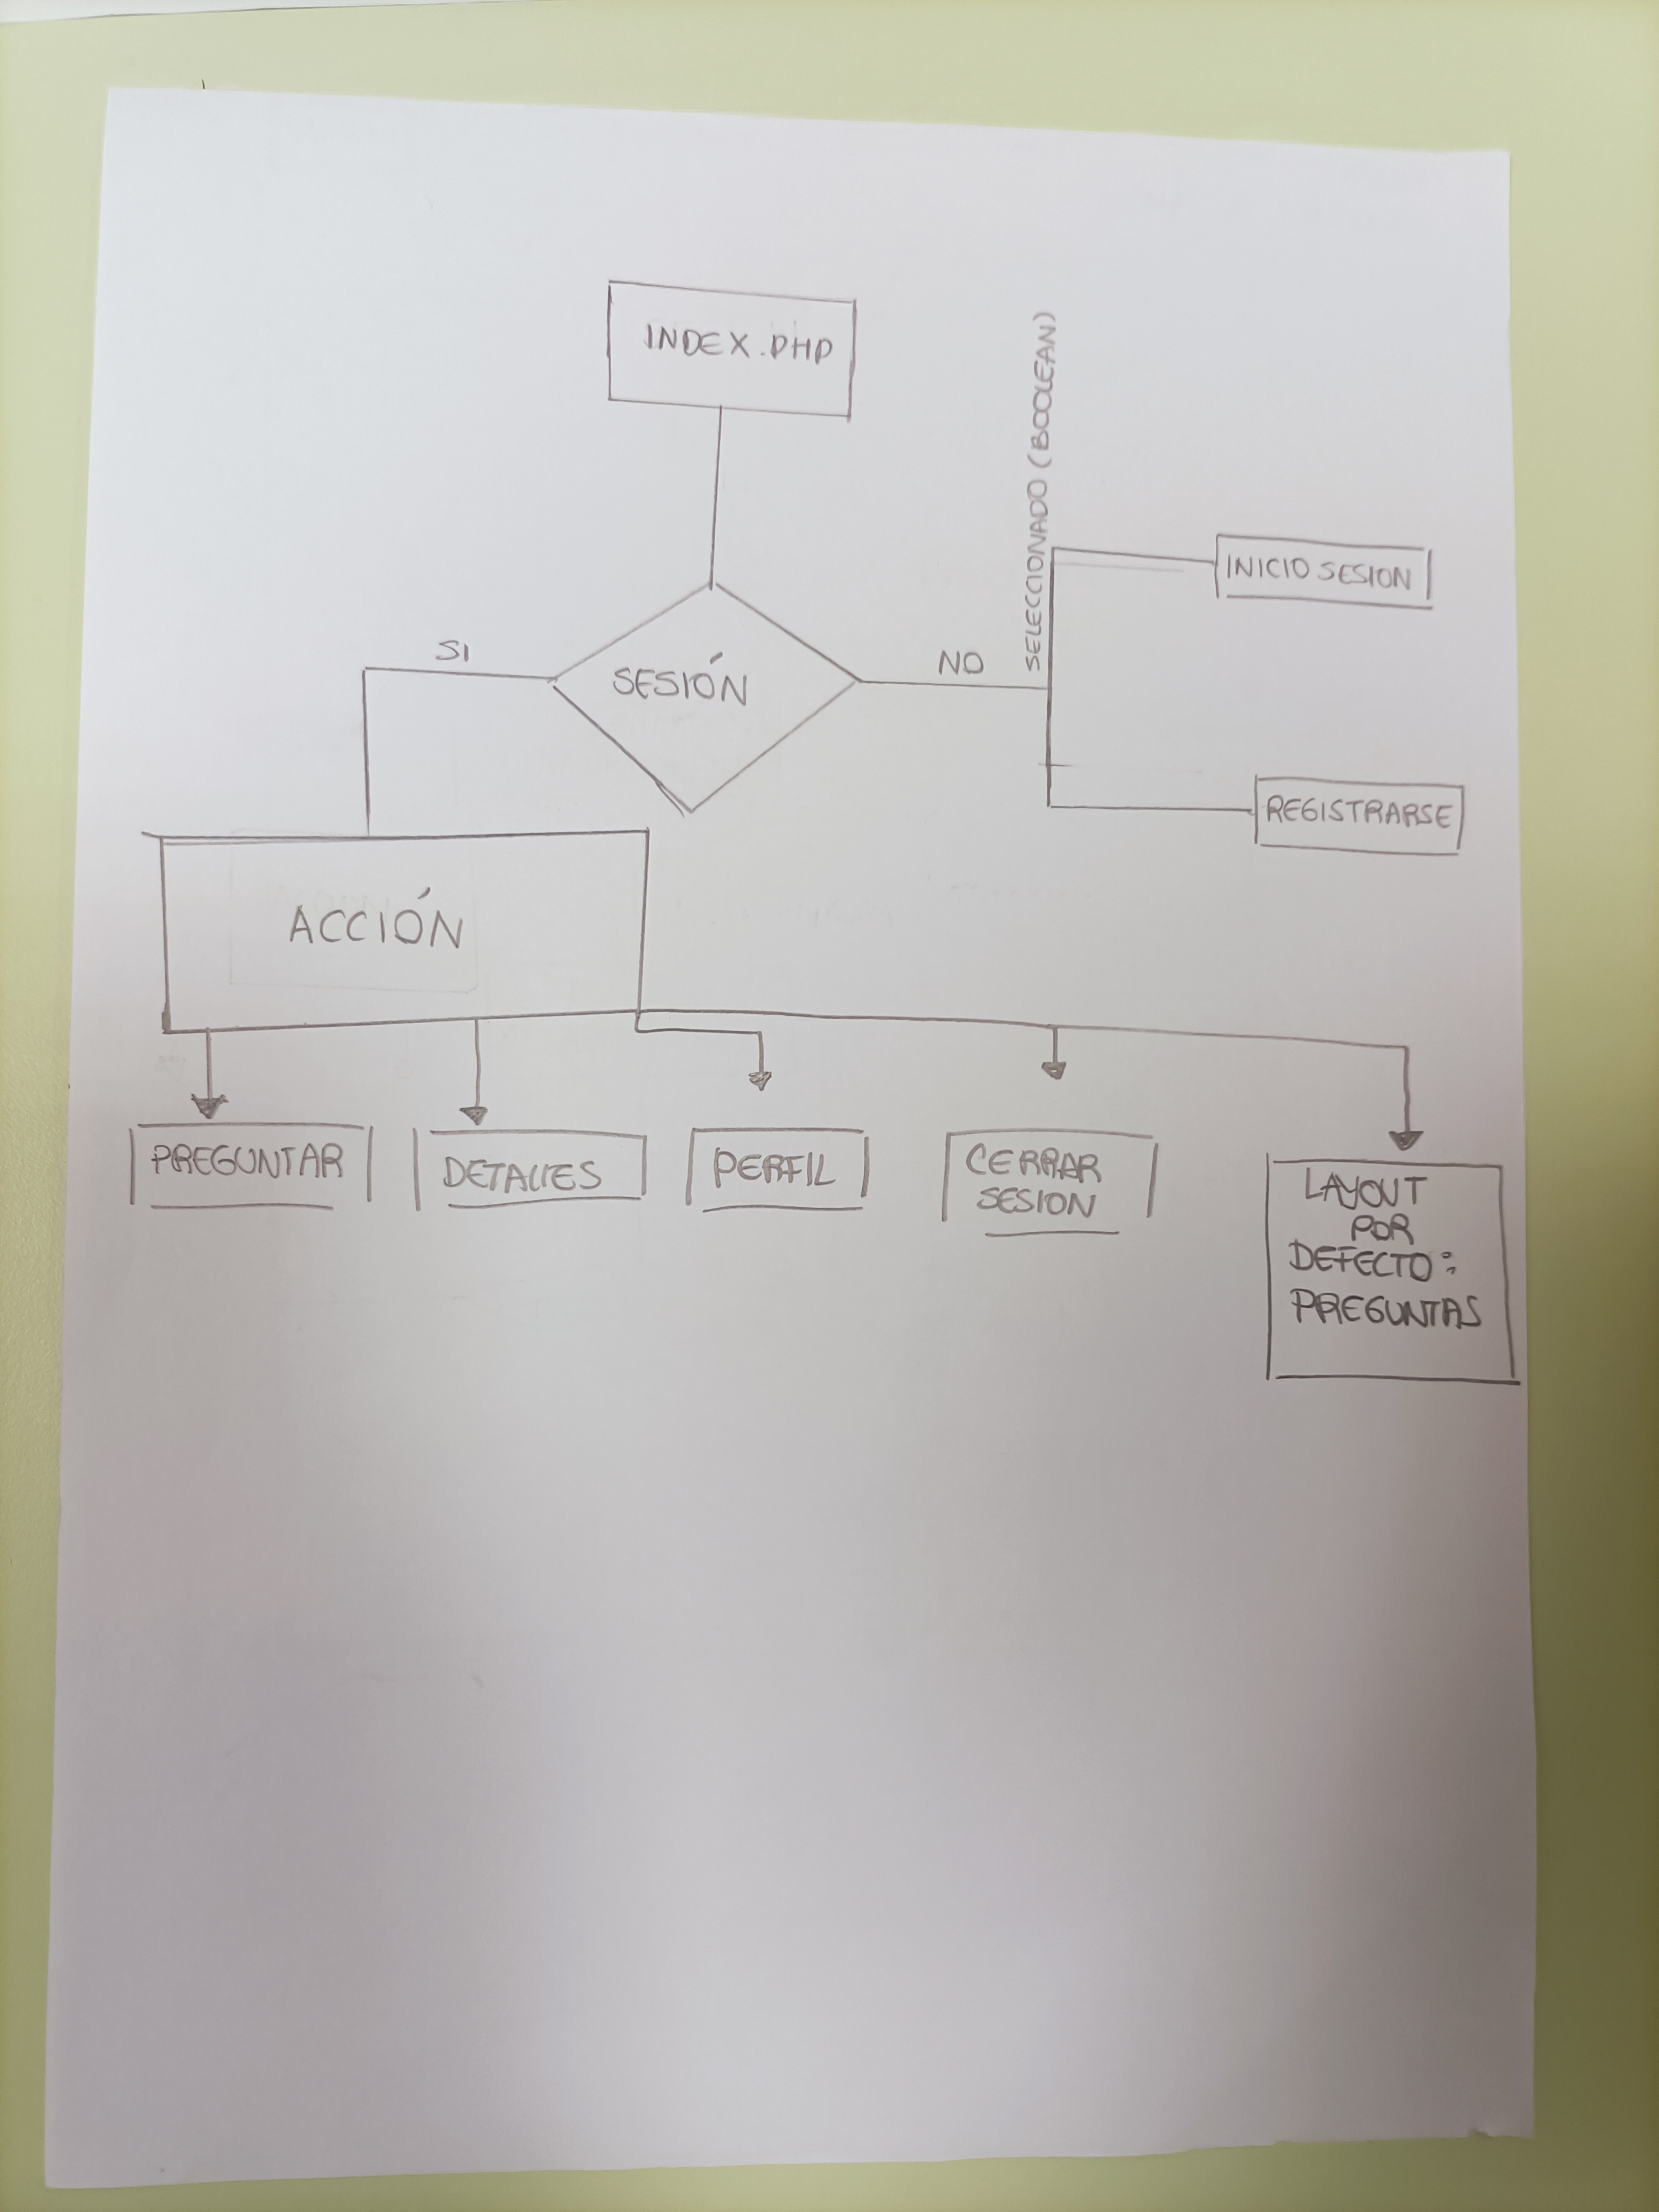 INDEX.PHP
SELECCIONADO (BOOLEAN)
INICIO SESION
SI
SESIÓN
NO
REGISTRARSE
ACCIÓN
PREGUNTAR
DETALLES
PERFIL
CERRAR
SESION
LAYOUT
POR
DEFECTO:
PREGUNTAS